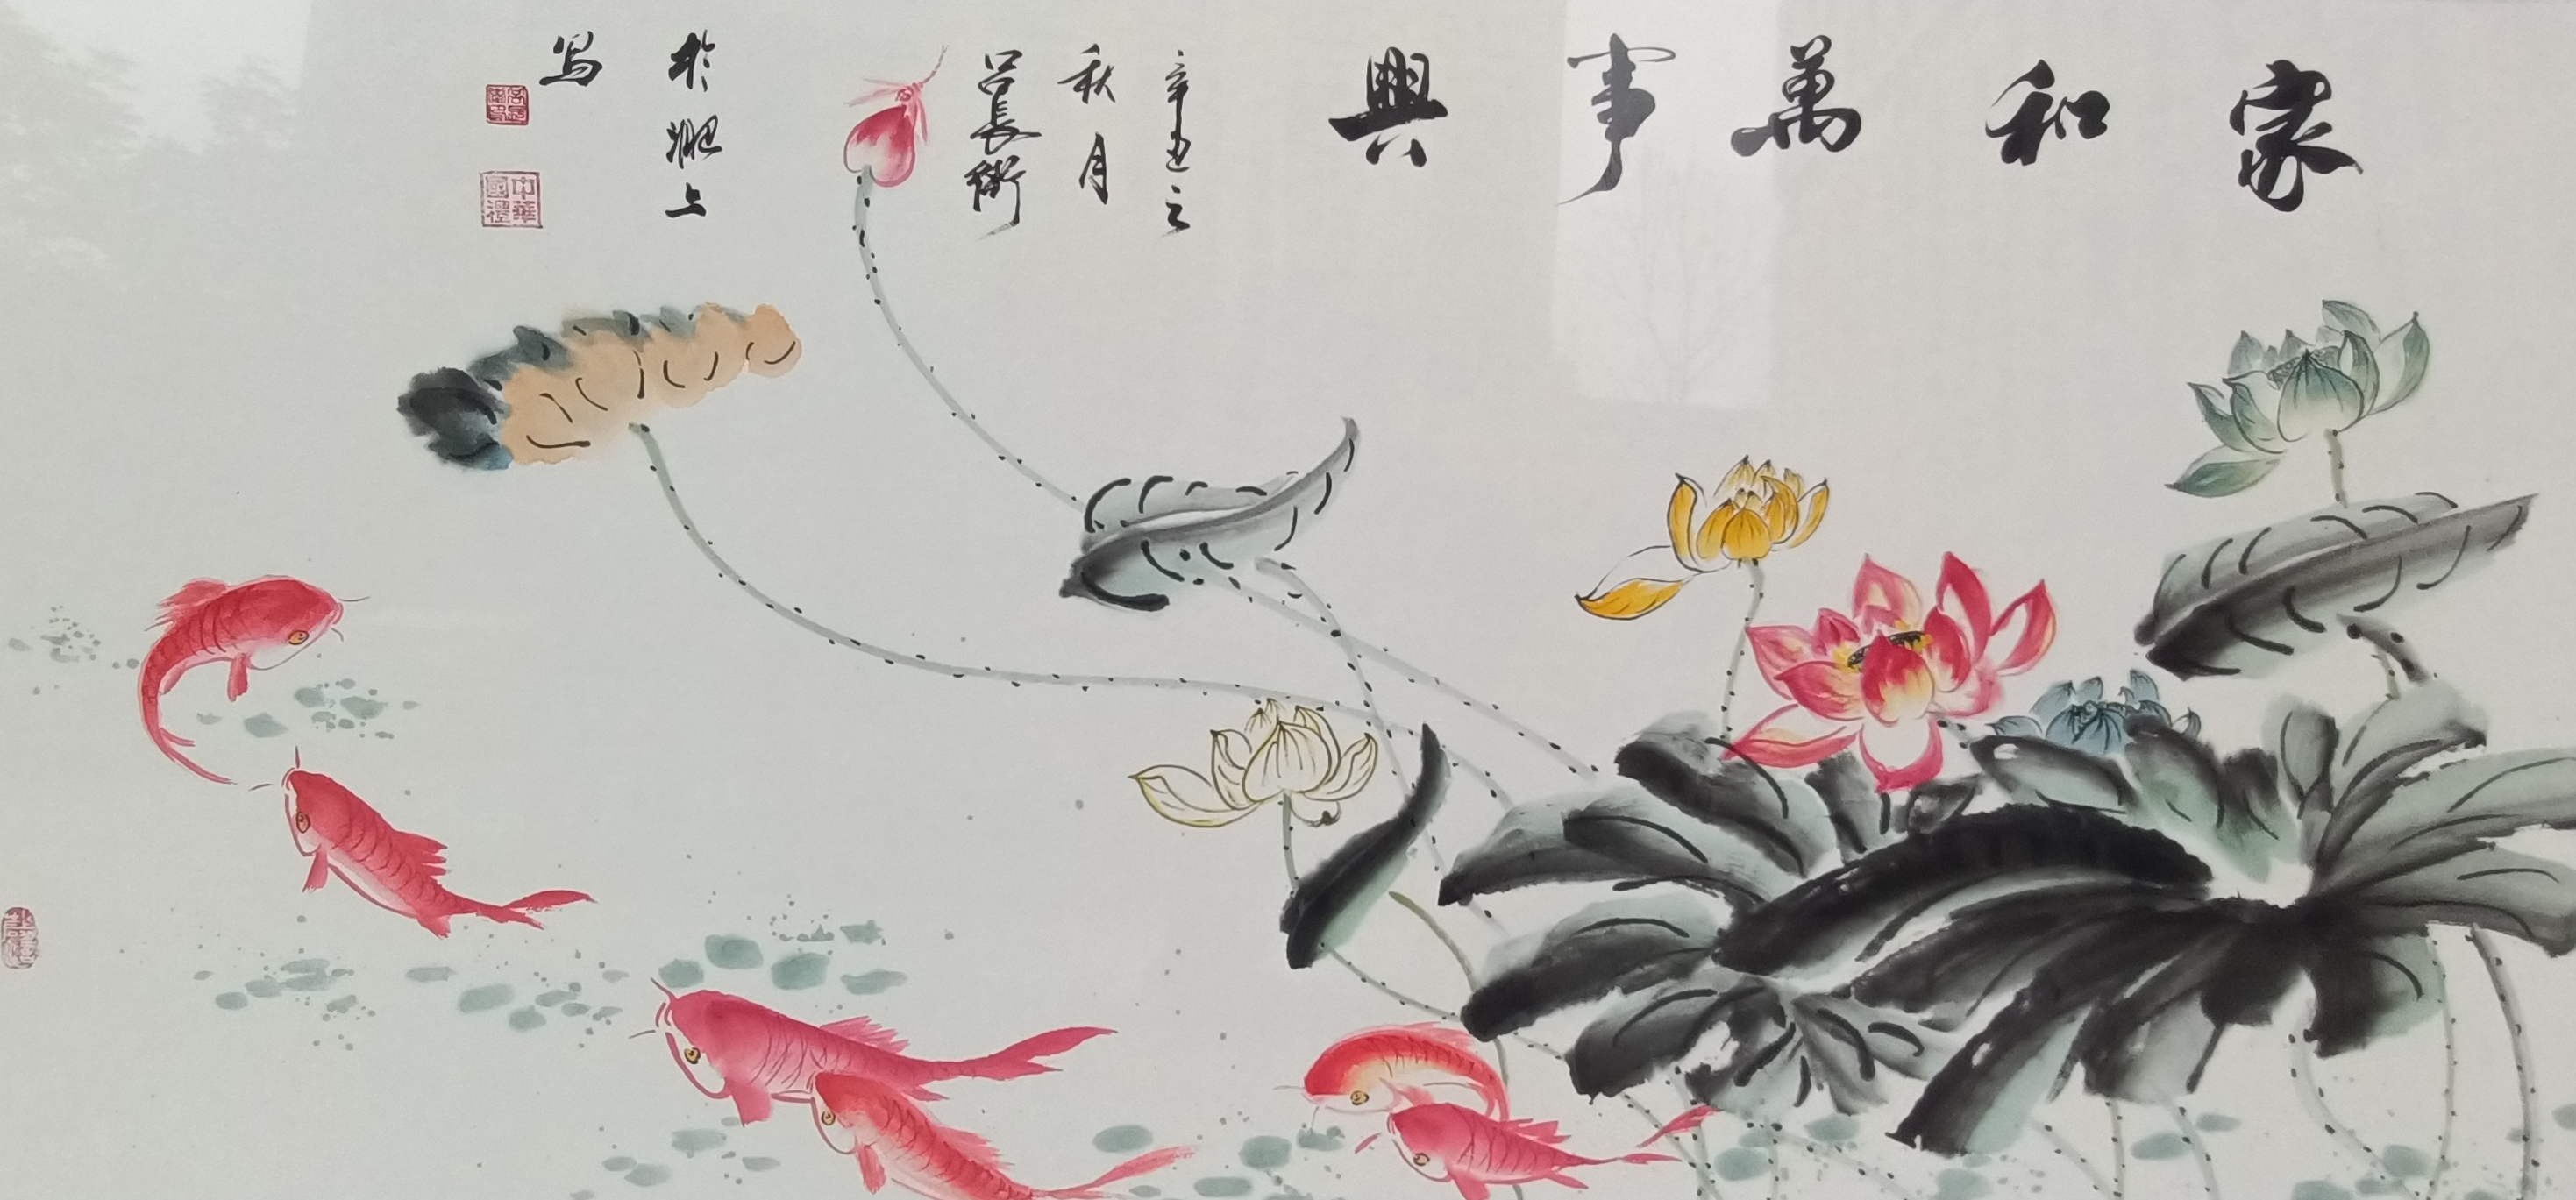 家和萬事興
辛丑之
秋月
呂長衛
於淝上
写
中華
國禮